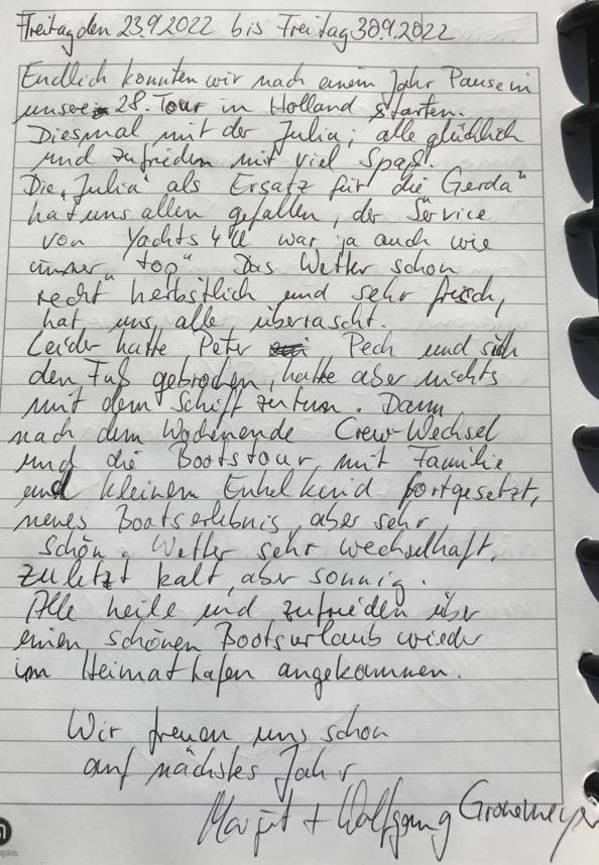 Freitag den 23.9.2022 bis Freitag 30.9.2022
Endlich konnten wir nach einem Jahr Pause in
unsere 28. Tour in Holland starten.
Diesmal mit der Julia; alle glücklich
und zufrieden mit viel Spaß.
Die "Julia" als Ersatz für die Gerda"
hat uns allen gefallen, der Service
von Yachts 4U war ja auch wie
immer "top". Das Wetter schon
recht herbstlich und sehr frisch,
hat uns alle überrascht.
Leider hatte Peter Pech und sich
den Fuß gebrochen, hatte aber nichts
mit dem Schiff zu tun. Dann
nach dem Wochenende Crew-Wechsel
und die Bootstour mit Familie
und kleinem Enkelkind fortgesetzt,
neues Bootserlebnis, aber sehr
schön. Wetter sehr wechselhaft,
zuletzt kalt, aber sonnig.
Alle heile und zufrieden über
einen schönen Bootsurlaub wieder
im Heimathafen angekommen.
Wir freuen uns schon
auf nächstes Jahr
Margit + Wolfgang